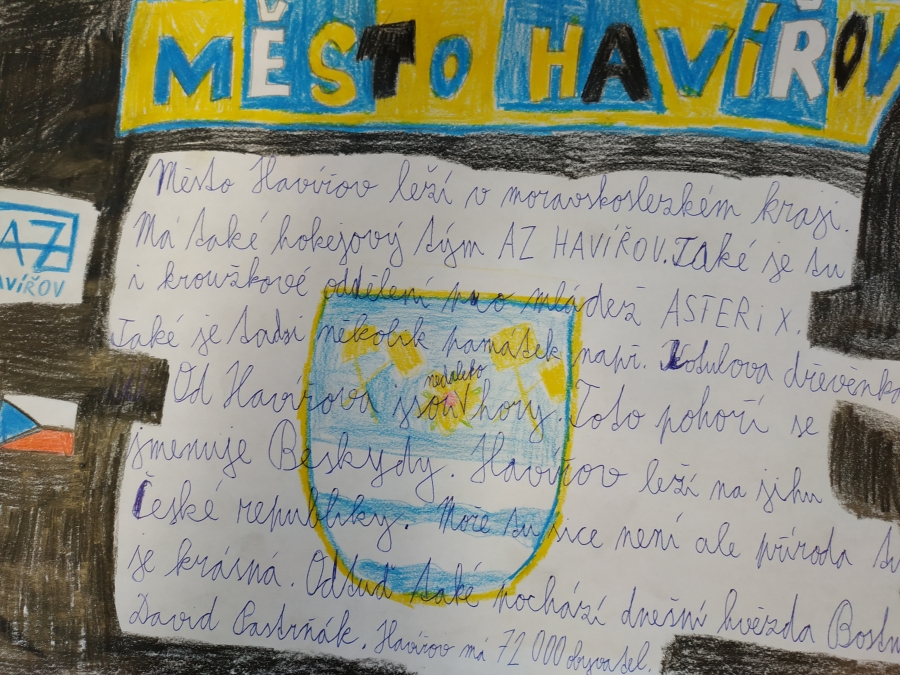 MĚSTO HAVÍŘOV
Město Havířov leží v moravskoslezkém kraji.
Má také hokejový tým AZ HAVÍŘOV. Také je tu
i kroužkové oddělení pro mládež ASTERiX.
Také je tadsi několik památek např. Kotulova dřevěnka
Od Havířova jsou nedaleko hory. Toto pohoří se
jmenuje Beskydy. Havířov leží na jihu
České republiky. Moře tu sice není ale příroda tu
je krásná. Odtuď také pochází dnešní hvězda Bostnu
David Pastrňák. Havířov má 72 000 obyvatel.
AZ
HAVÍŘOV